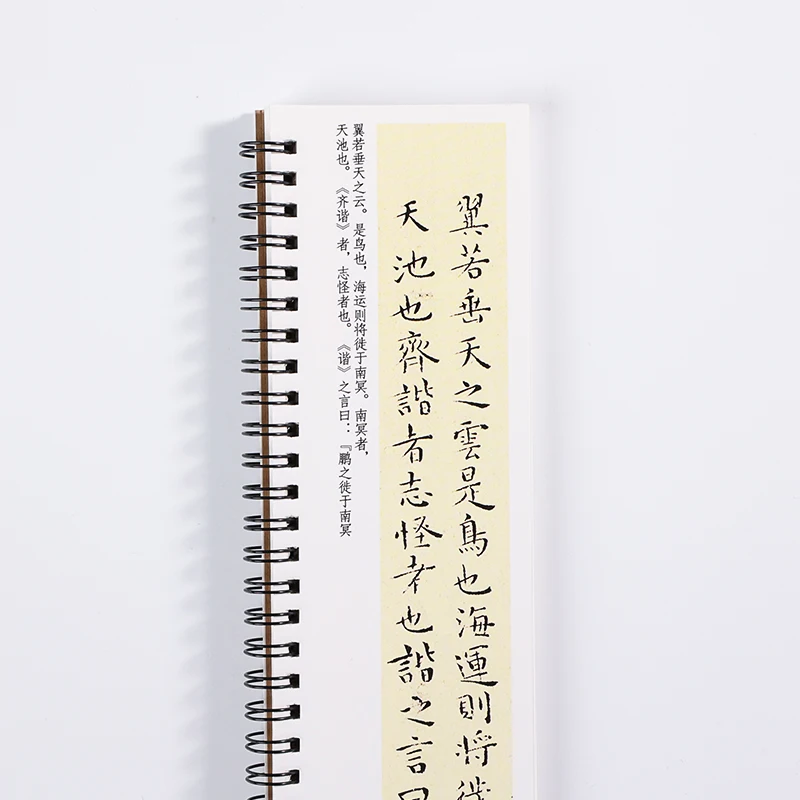 翼若垂天之雲是鳥也海運則將徙
天池也齊諧者志怪者也諧之言曰
翼若垂天之云。是鸟也，海运则将徙于南冥。南冥者，
天池也。《齐谐》者，志怪者也。《谐》之言曰：『鹏之徙于南冥